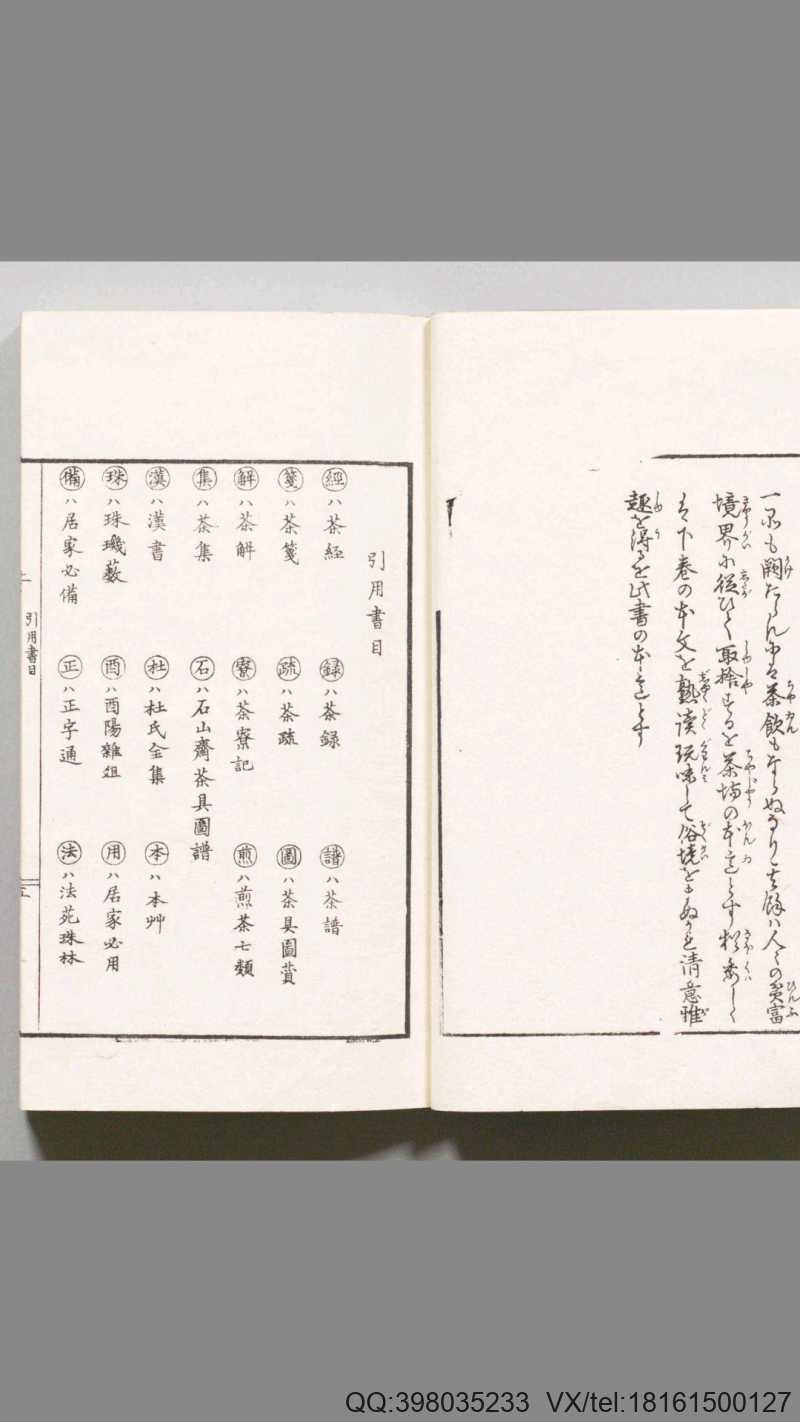 一品も闕たらんには茶飲もならぬなり其餘ハ人々の貧富
境界に從ひて取捨するを茶場の本意とす
は下巻の本文を熟讀玩味して俗境をまぬかれ清意雅
趣を得るを此書の本意とす
引用書目
經ハ茶經 録ハ茶録 譜ハ茶譜
箋ハ茶箋 疏ハ茶疏 圖ハ茶具圖賛
解ハ茶解 寮ハ茶寮記 煎ハ煎茶七類
集ハ茶集 石ハ石山齋茶具圖譜
漢ハ漢書 杜ハ杜氏全集 本ハ本艸
珠ハ珠璣藪 酉ハ酉陽雜俎 用ハ居家必用
備ハ居家必備 正ハ正字通 法ハ法苑珠林
上 引用書目 五
QQ:398035233 VX/tel:18161500127